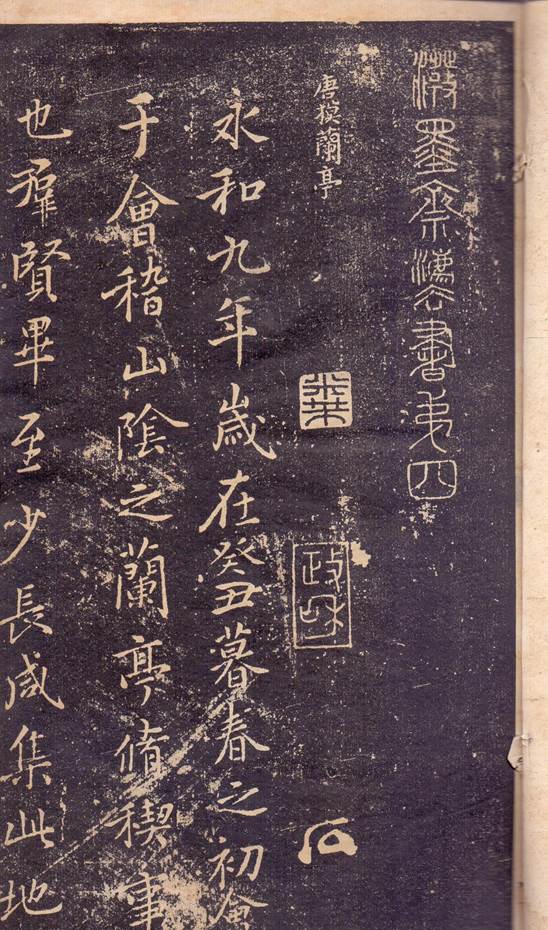 潑墨齋灋書弟四
唐模蘭亭
政和
永和九年歲在癸丑暮春之初會
于會稽山陰之蘭亭脩稧事
也羣賢畢至少長咸集此地